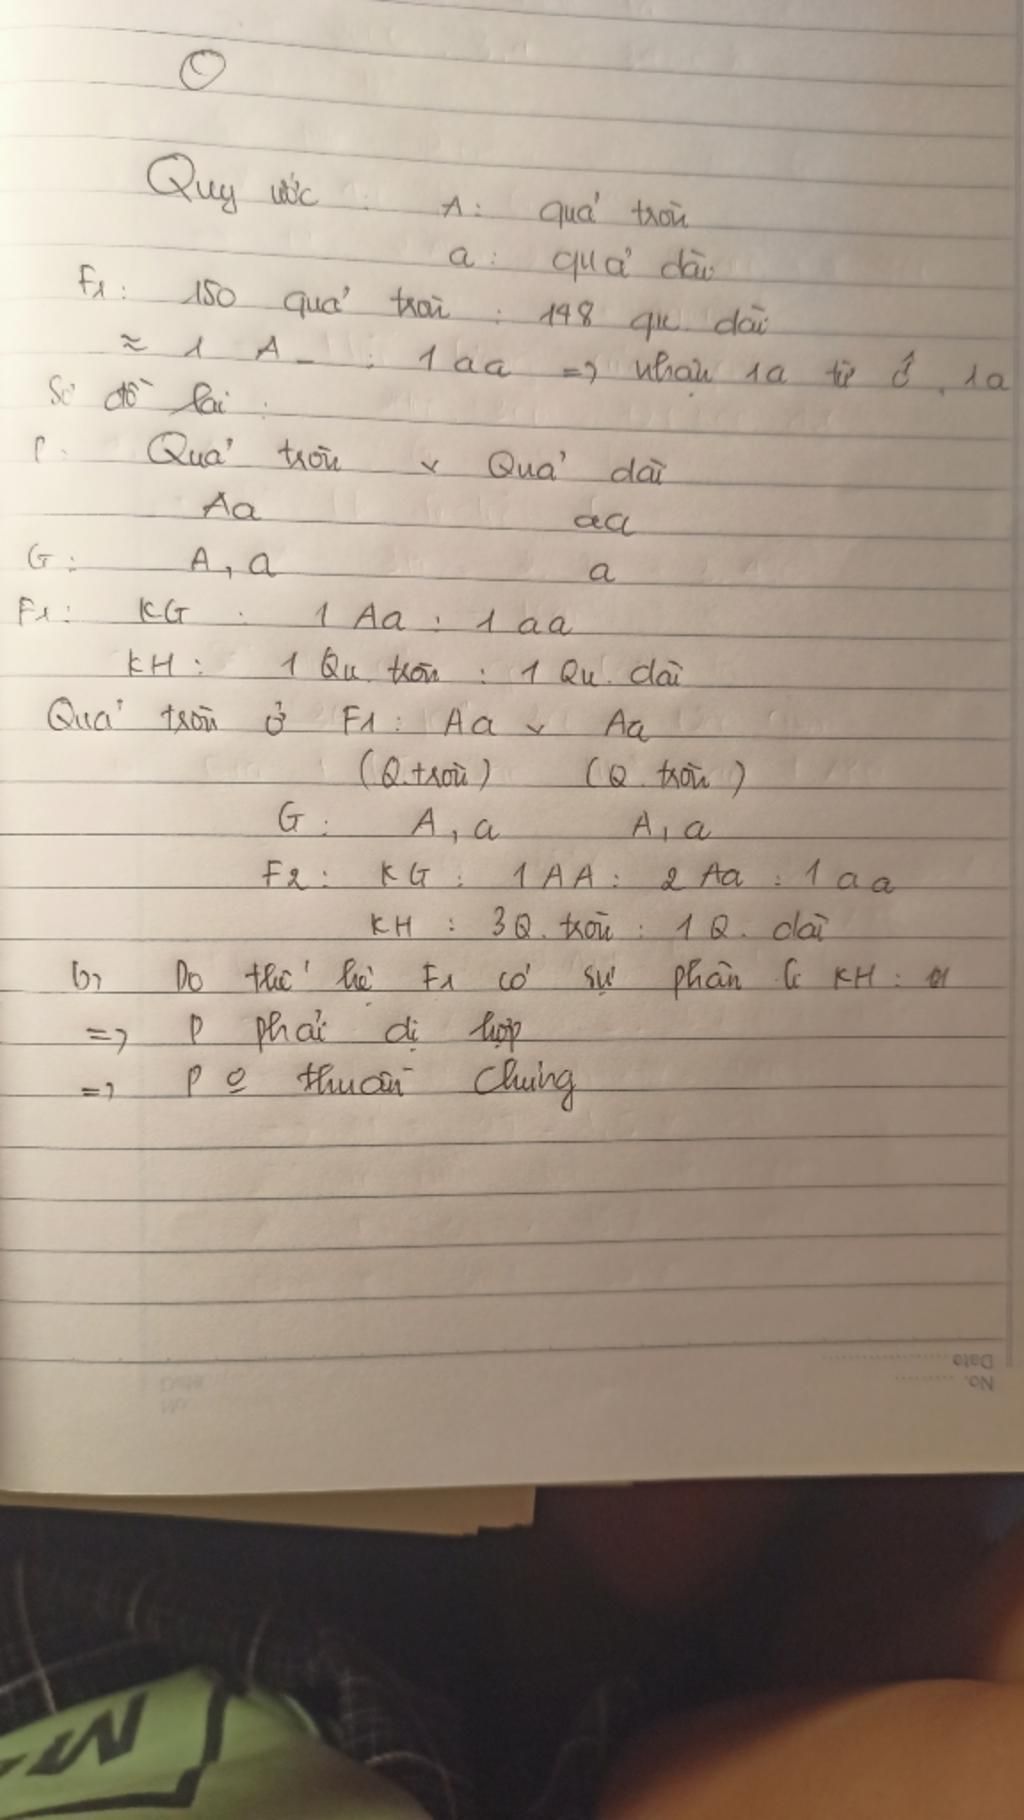 Quy ước : A : quả tròn
a : quả dài
F1 : 150 quả tròn : 148 qu. dài
≈ 1 A_ : 1 aa => nhận 1a từ ♂, 1a
Sơ đồ lai :
P : Quả tròn x Quả dài
Aa aa
G : A, a a
F1 : KG : 1 Aa : 1 aa
KH : 1 Qu. tròn : 1 Qu. dài
Quả tròn ở F1 : Aa x Aa
(Q. tròn) (Q. tròn)
G : A, a A, a
F2 : KG : 1 AA : 2 Aa : 1 aa
KH : 3 Q. tròn : 1 Q. dài
b, Do thế hệ F1 có sự phân li KH :
=> P phải dị hợp
=> P thuần chủng
No.
Date